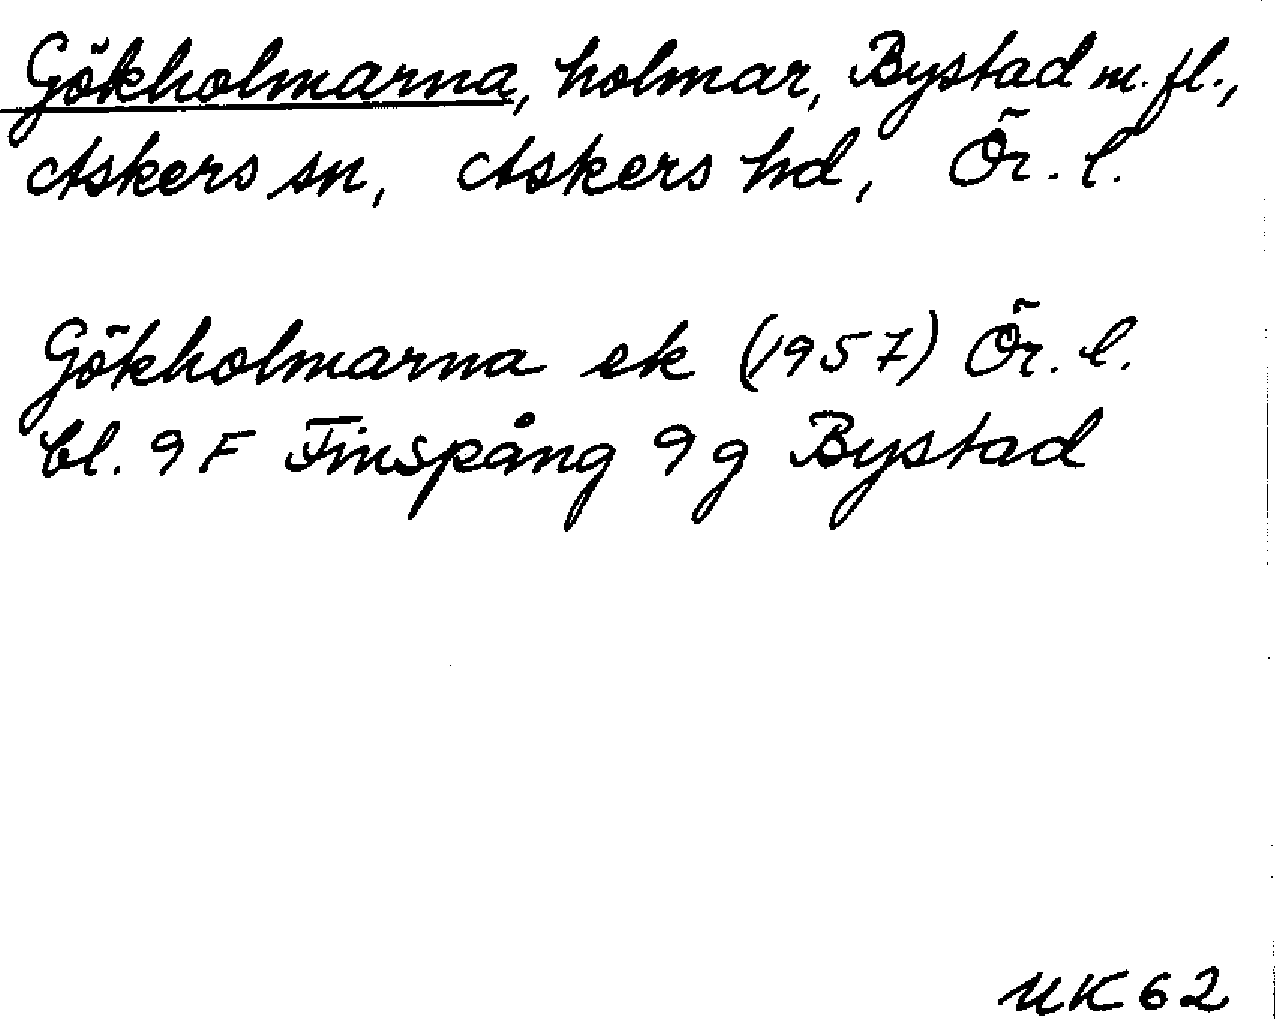 Gökholmarna, holmar, Bystad m.fl.,
Askers sn, Askers hd, Ör. l.
Gökholmarna ek (1957) Ör. l.
bl. 9 F Finspång 9 g Bystad
UK 62